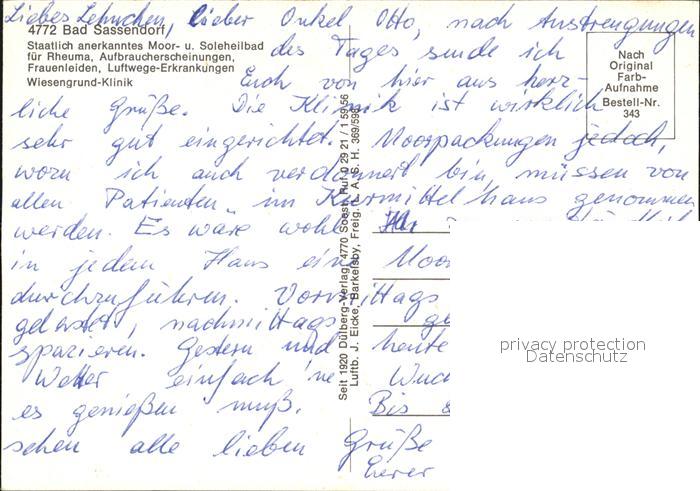 Liebes Lehnchen, lieber Onkel Otto, nach Anstrengungen
4772 Bad Sassendorf
Staatlich anerkanntes Moor- u. Soleheilbad
für Rheuma, Aufbraucherscheinungen,
Frauenleiden, Luftwege-Erkrankungen
Wiesengrund-Klinik
des Tages sende ich
Euch von hier aus herz-
Nach
Original
Farb-
Aufnahme
Bestell-Nr.
343
liche Grüße. Die Klinik ist wirklich
sehr gut eingerichtet. Moorpackungen jedoch,
wozu ich auch verdonnert bin, müssen von
allen Patienten im Kurmittelhaus genommen
werden. Es wäre wohl
in jedem Haus eine Moor
durchzuführen. Vormittags
geleistet, nachmittags ge
spazieren. Gestern und heute
Wetter einfach 'ne Wuc
es genießen muß. Bis
sehen alle lieben Grüße
Eurer
Seit 1920 Dülberg-Verlag, 4770 Soest, Ruf 0 29 21 / 1 59 56
Luftb. J. Eicke, Barkelsby, Freig. L. A. S. H. 369/598
privacy protection
Datenschutz